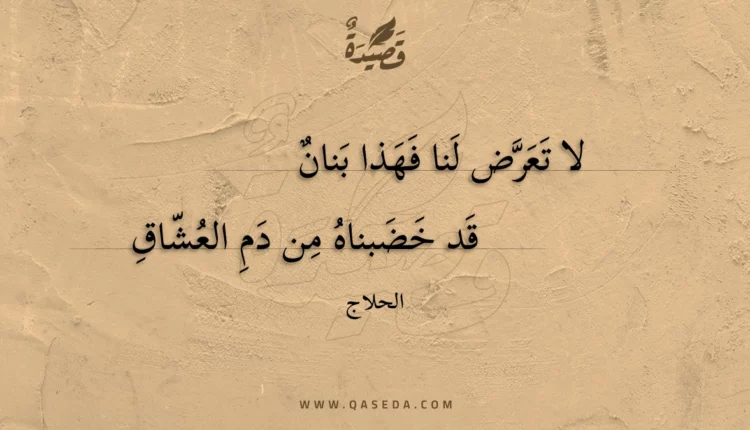 قَصِيدَةٌ
لا تَعَرَّض لَنا فَهَذا بَنانٌ
قَد خَضَبناهُ مِن دَمِ العُشّاقِ
الحلاج
WWW.QASEDA.COM